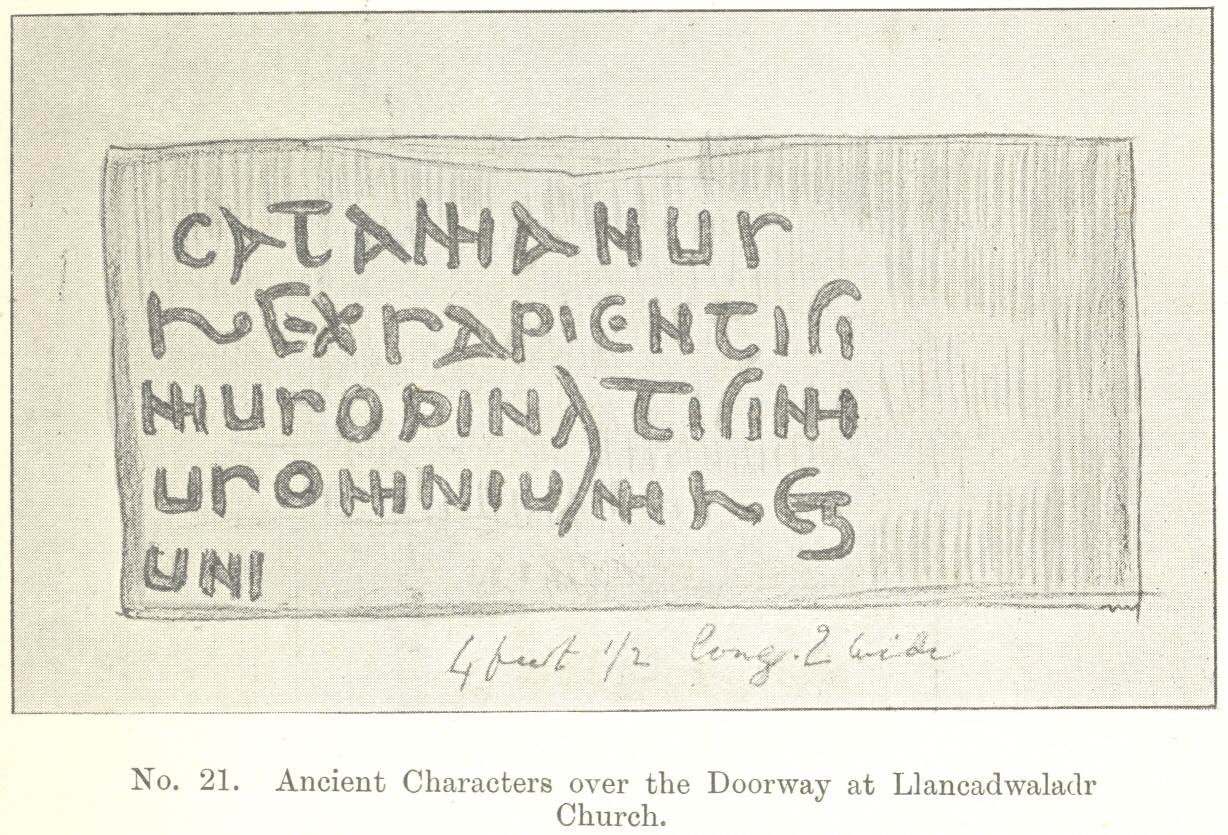 CATAMANUS
REXSAPIENTISI
MUSOPINATISIM
USOMNIUMREG
UNI
4 feet 1/2 long. 2 wide
No. 21. Ancient Characters over the Doorway at Llancadwaladr
Church.